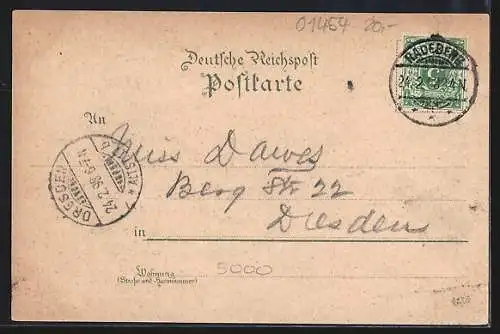 01454 20,-
Deutsche Reichspost
Postkarte
RADEBERG
24 2
5
An
Miss Dawes
Berg Str. 22
Dresden
in
DRESDEN ALTST.
24.2.98 6-7 N
b
Wohnung
(Straße und Hausnummer)
5000